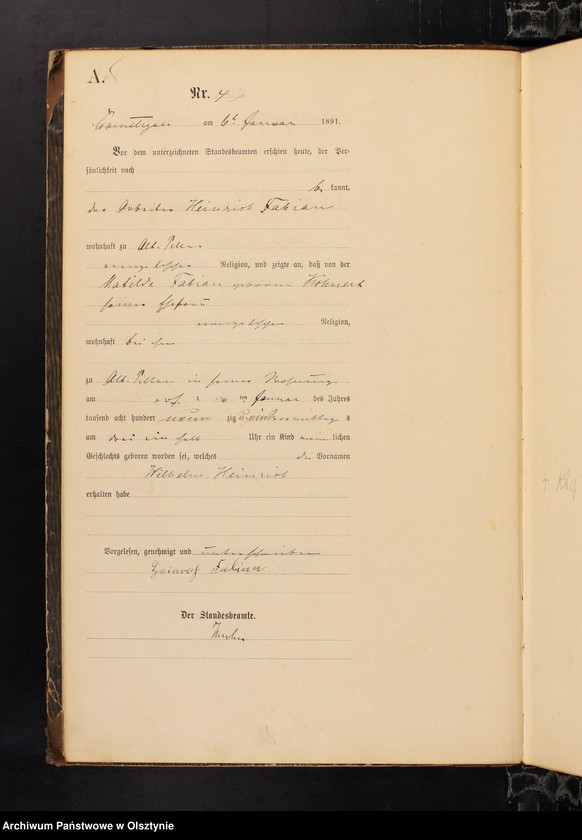 A.
Nr. 4
am 6t Januar 1891.
Vor dem unterzeichneten Standesbeamten erschien heute, der Per-
sönlichkeit nach
be kannt,
der Arbeiter Heinrich Fabian
wohnhaft zu Alt-Pillau
evangelischer Religion, und zeigte an, daß von der
Matilde Fabian geborene Wohnert
seiner Ehefrau
evangelischer Religion,
wohnhaft bei ihm
zu Alt-Pillau in seiner Wohnung
am Januar des Jahres
tausend acht hundert neun zig und ein Vormittags
um drei ein halb Uhr ein Kind männ lichen
Geschlechts geboren worden sei, welches die Vornamen
Wilhelm Heinrich
erhalten habe
Vorgelesen, genehmigt und unterschrieben
Heinrich Fabian
Der Standesbeamte.
Archiwum Państwowe w Olsztynie